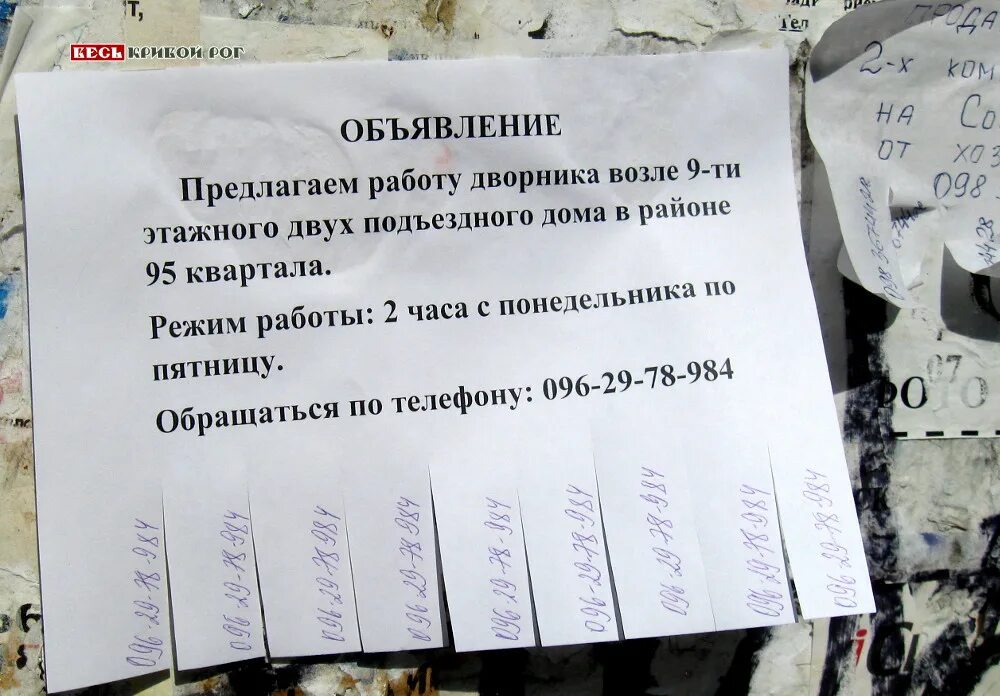 т,
ВЕСЬ КРИВОЙ РОГ
ОБЪЯВЛЕНИЕ
Предлагаем работу дворника возле 9-ти
этажного двух подъездного дома в районе
95 квартала.
Режим работы: 2 часа с понедельника по
пятницу.
Обращаться по телефону: 096-29-78-984
096-29-78-984
096-29-78-984
096-29-78-984
096-29-78-984
096-29-78-984
096-29-78-984
096-29-78-984
096-29-78-984
096-29-78-984
ПРОДА
2-х ком
НА Со
ОТ ХОЗ
098
Тел
97
РОТО